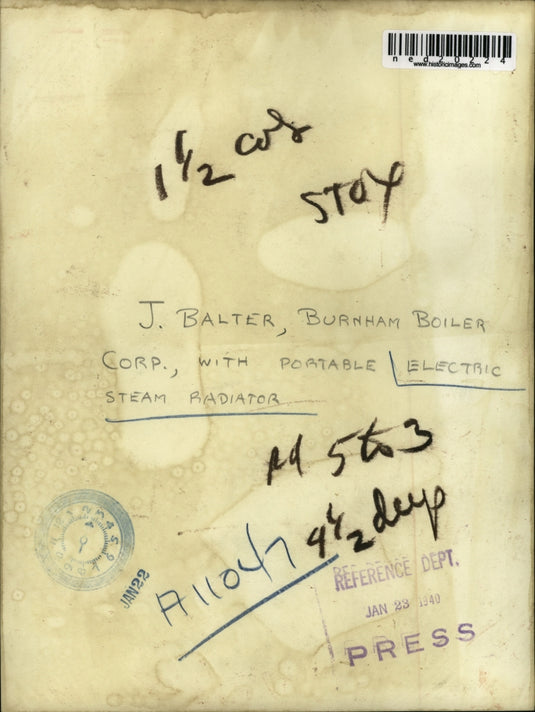 ned20224
www.historicimages.com
1 1/2 cols
STOX
J. BALTER, BURNHAM BOILER
CORP., WITH PORTABLE ELECTRIC
STEAM RADIATOR
5 to 3
4 1/2 deep
A11047
JAN 22
REFERENCE DEPT.
JAN 23 1940
PRESS